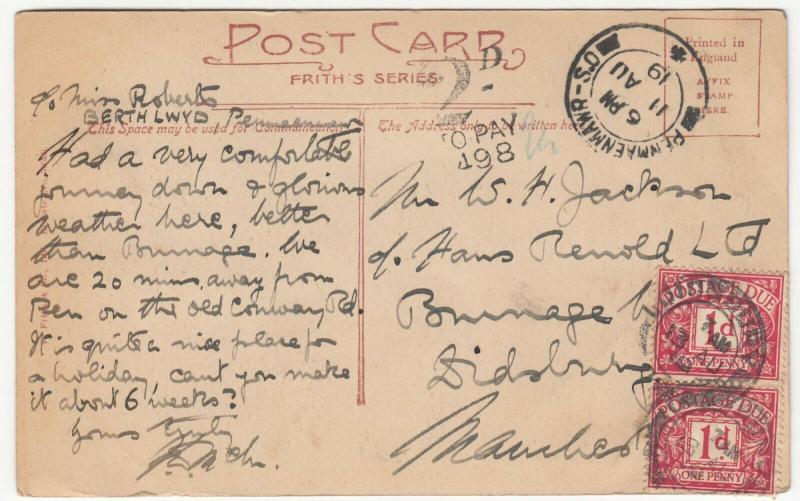 POST CARD
FRITH'S SERIES.
Printed in
England
AFFIX
STAMP
HERE.
PENMAENMAWR-S.O
6 PM
11 AU
19
2 D.
TO PAY
498
c/o Miss Roberts
BERTHLWYD Penmaenmawr
This Space may be used for Communication
The Address only to be written here
Had a very comfortable
journey down & glorious
weather here, better
than Burnage. We
are 20 mins. away from
Pen on the Old Conway Rd.
It is quite a nice place for
a holiday, cant you make
it about 6 weeks?
Yours truly
Mr W. H. Jackson
c/o Hans Renold Ltd
Burnage
Didsbury
Manches
POSTAGE DUE
1d
ONE PENNY
POSTAGE DUE
1d
ONE PENNY